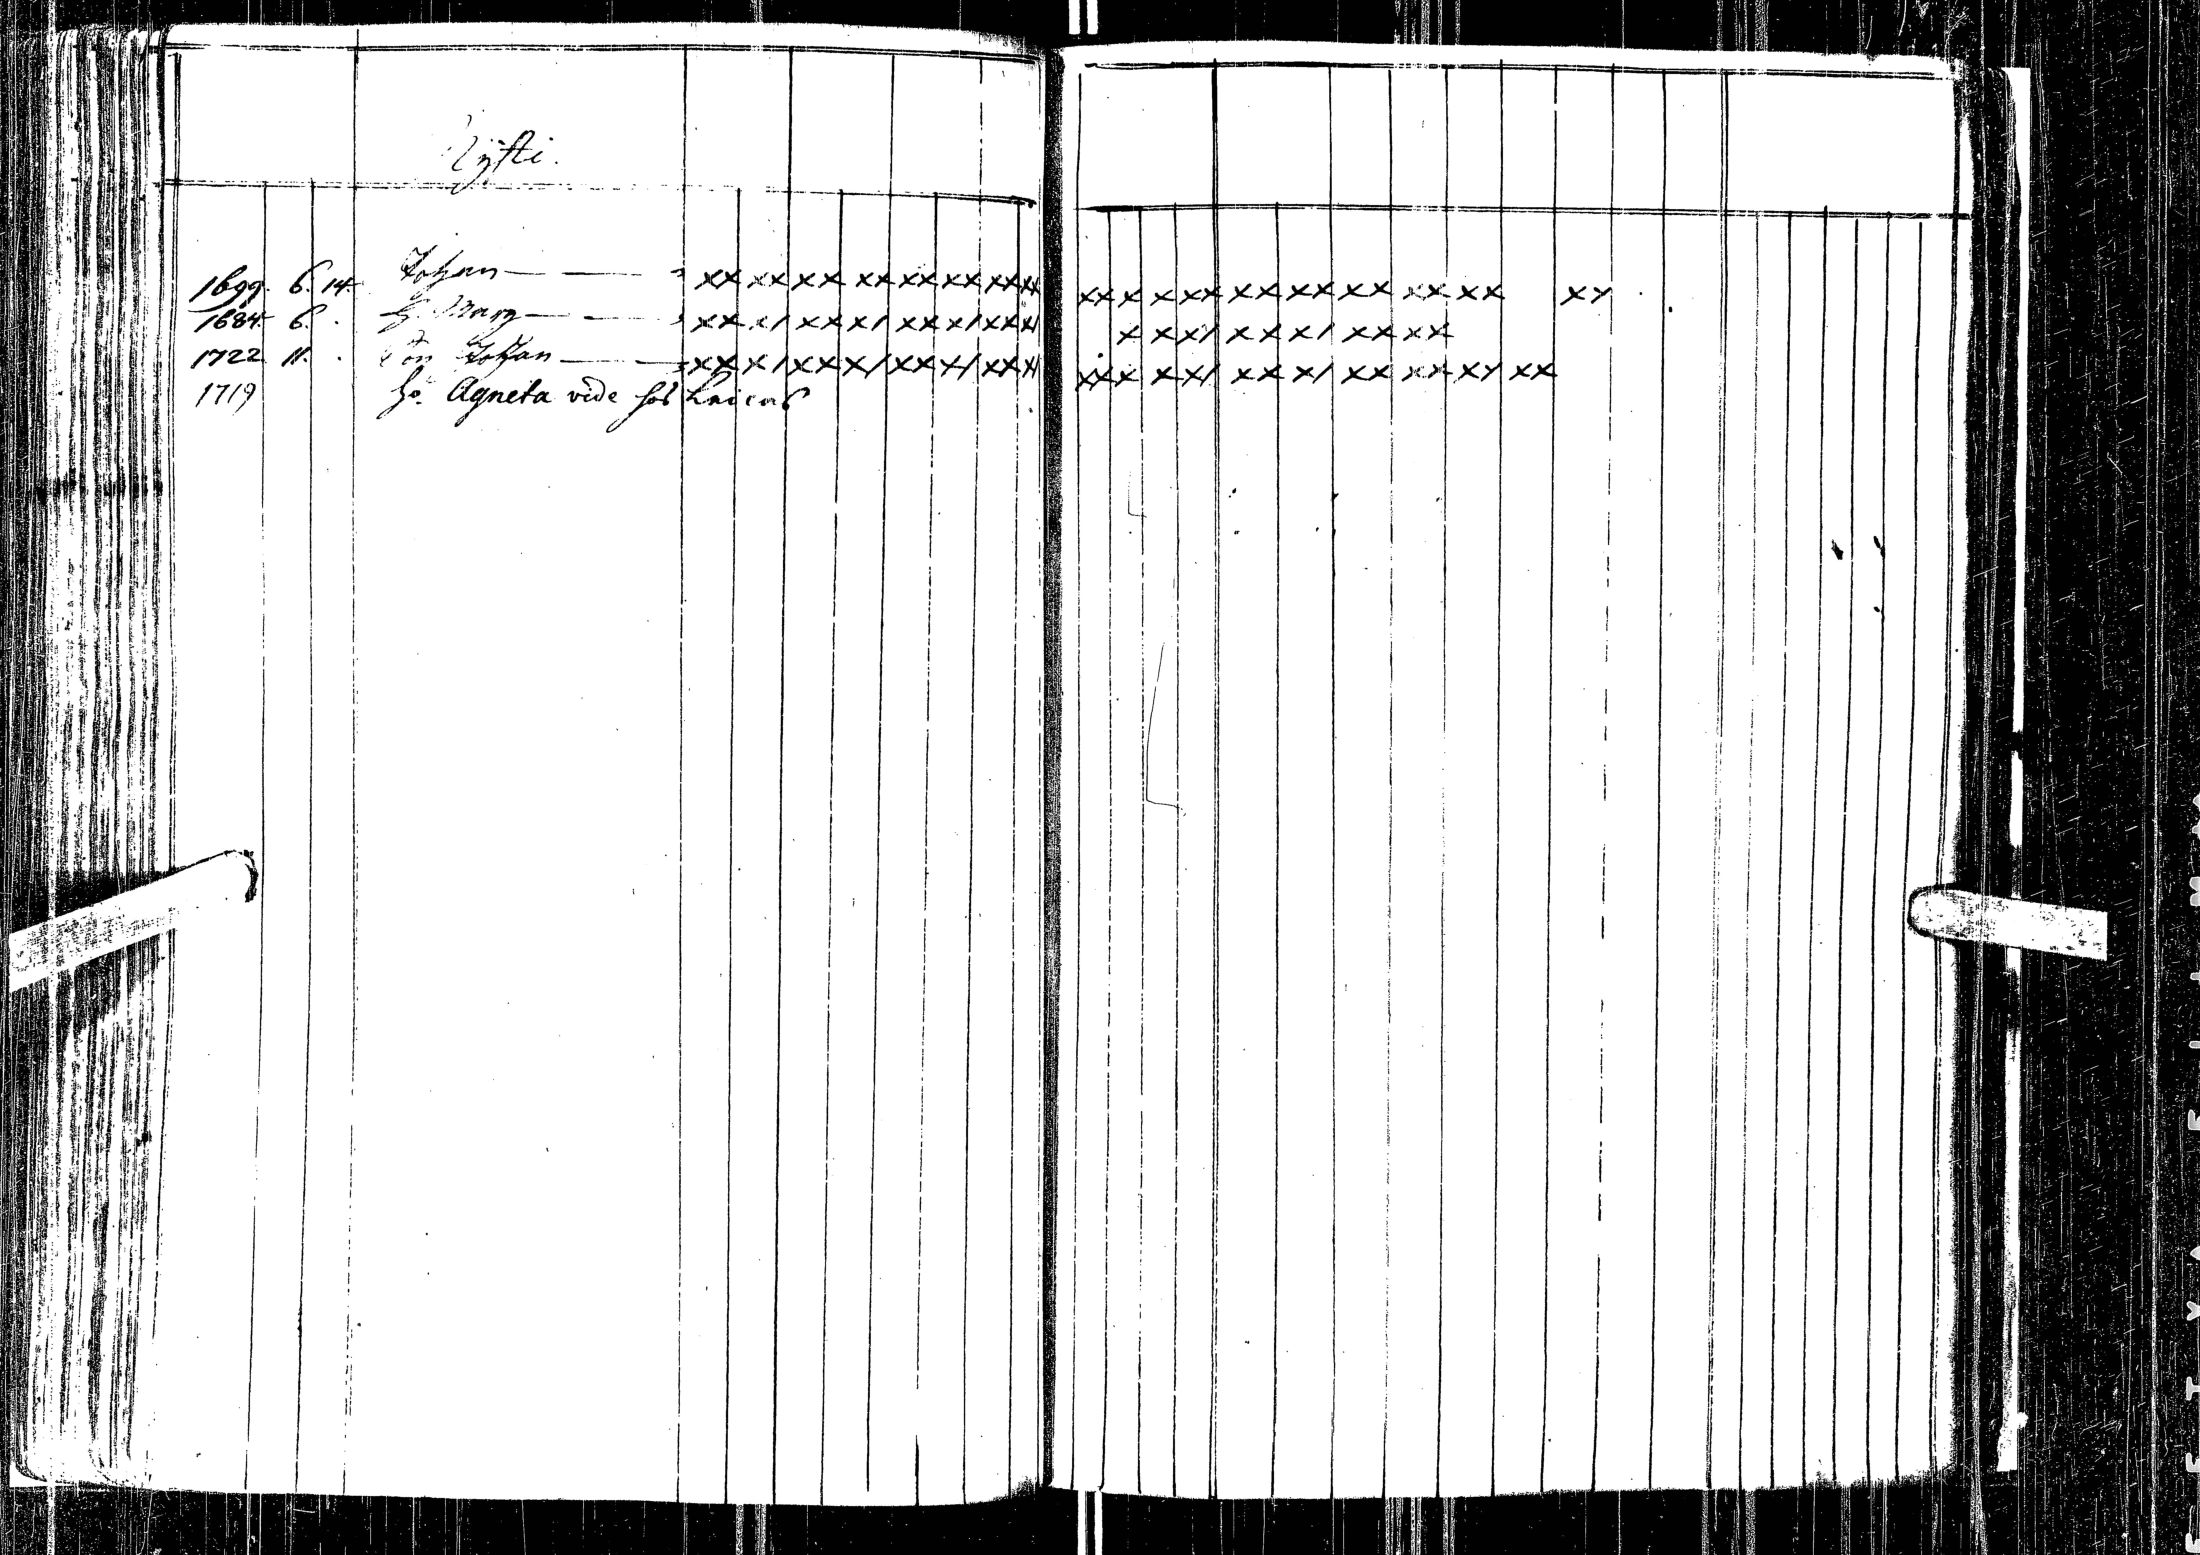 Nysti.
1699. 6. 14. Johan — — xx xx xx xx xx xx xxx xxx xxx xx xx xx xx xx xx
1684. 6. H. Marg — — xx x/ xx x/ xx x/ xxx x xx/ xx x/ xx xx
1722 11. Son Johan — — xx x/ xx x/ xx x/ xxx xxx xx/ xx x/ xx xx xx xx
1719 ho. Agneta vide hos